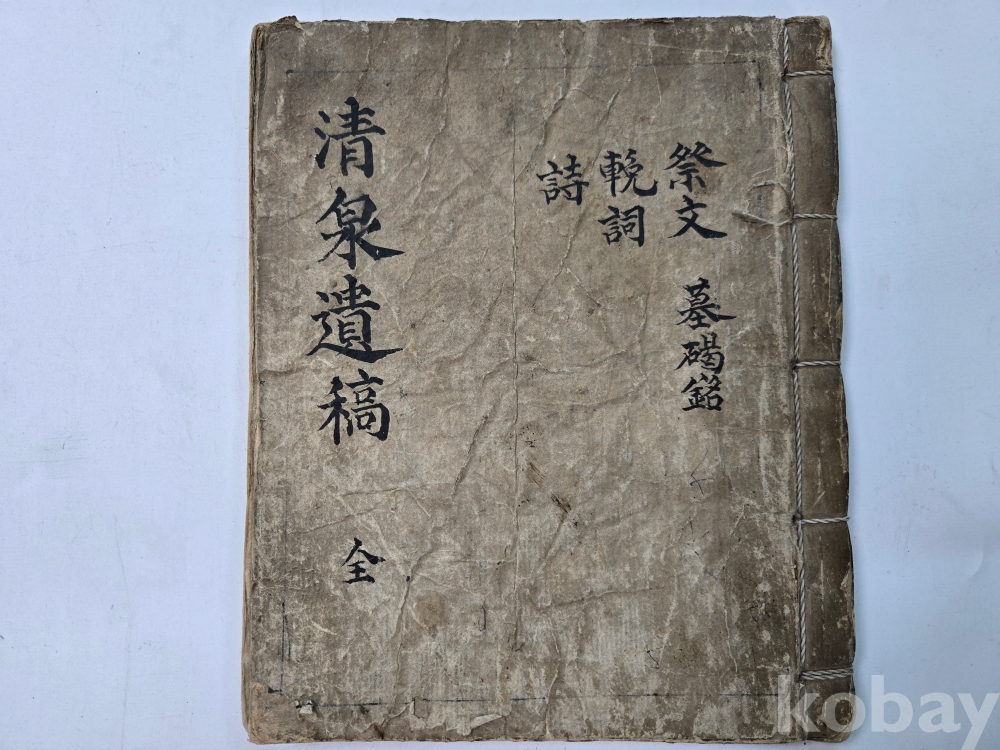 祭文 墓碣銘
輓詞
詩
清泉遺稿 全
kobay